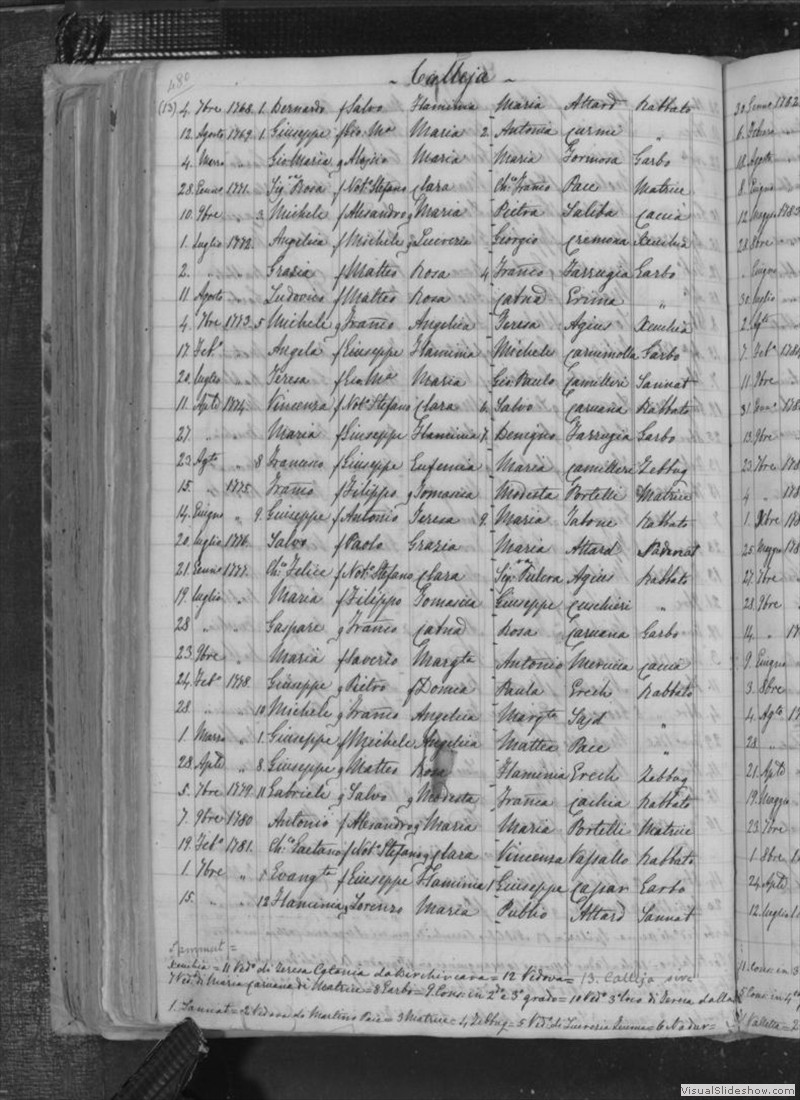 480
- Calleja -
(13) 4. 7bre 1768. 1. Bernardo f Salvo Flaminia Maria Attard Rabbato
12. Agosto 1769. 1. Giuseppe f Gio Ma Maria 2. Antonia Curmi "
4. Marzo " Gio Maria g Alojsio Maria Maria Formosa Garbo
28. Genn. 1771. Sig.ra Rosa f Not. Stefano Clara Ch.o Franco Pace Matrice
10. 9bre " 3. Michele f Alesandro g Maria Pietra Saliba Caccia
1. Luglio 1772. Angelica f Michele g Lucrezia Giorgio Cremona Xeuchia
2. " " Grazia f Matteo Rosa 4 Franco Farrugia Garbo
11. Agosto " Ludovico f Matteo Rosa Catnd Erima "
4. 7bre 1773. 5 Michele g Franco Angelica Teresa Agius Xeuchia
17. Feb.o " Angela f Giuseppe Flaminia Michele Garbo
20. Luglio " Teresa f Gio Ma Maria Gio Paulo Camilleri Sannat
11. Aple 1774. Vincenza f Not. Stefano Clara 6. Salvo Caruana Rabbato
27. " " Maria f Giuseppe Flaminia 7. Benigno Farrugia Garbo
23. Agto " 8 Francesco f Giuseppe Eufemia Maria Camilleri Zebbug
15. " 1775. Franco f Filippo g Tomasia Modesta Portelli Matrice
14. Giugno " 9. Giuseppe f Antonio Teresa 9. Maria Tabone Rabbato
20. Luglio 1776. Salvo f Paolo Grazia Maria Attard Nadorat
21. Genn. 1777. Ch.o Felice f Not. Stefano Clara Sig.ra Agius Rabbato
19. Luglio " Maria f Filippo Tomasia Giuseppe Cuschieri "
28 " " Gaspare g Franco Catnd Rosa Caruana Garbo
23. 9bre " Maria f Saverio Margta Antonio Caccia
24. Feb.o 1778. Giuseppe g Pietro f Domca Paula Grech Rabbato
28. " " 10 Michele g Franco Angelica Margta Said "
1. Marzo " 1. Giuseppe f Michele Angelica Mattea Pace "
28. Aple " 8. Giuseppe g Matteo Rosa Flaminia Grech Zebbug
5. 7bre 1779. 11 Gabriele g Salvo g Modesta Franca Cachia Rabbato
7. 9bre 1780 Antonio f Alesandro g Maria Maria Portelli Matrice
19. Feb.o 1781. Ch.o Gaetano f Not. Stefano g Clara Vincenza Vassallo Rabbato
1. 7bre " Evangta f Giuseppe Flaminia 1 Giuseppe Cassar Garbo
15. " " 12 Flaminia g Lorenzo Maria Publio Attard Sannat
Sannat =
Xeuchia = 11 Vedo di Teresa da Birchircara = 12 Vedova = 13. Calleja sive
7 Vedo di Maria Caruana di Matrice = 8 Garbo = 9 Cons. in 2do e 3o grado = 10 Vedo di Teresa dalla
1. Sannat = 2 Vedova di Martino Pace = 3 Matrice = 4 Zebbug = 5 Vedo di Lucrezia = 6 Nadur =
30 Genn. 1782
6. Febraro
18. Agosto
8. Giugno
12. Maggio 1783
28. 8bre
" Giugno
30 Luglio
2. Agto
7. Feb.o 1784
11. 9bre
31. Genn.
13. 9bre
23. 7bre
4 "
1. Xbre
25. Maggio
27. 7bre
28. 9bre
14. "
9. Giugno
3. 8bre
4. Agto
28. "
21. Aple
19. Maggio
23. 7bre
1. 8bre
24. Aple
12. Luglio
11. Cons. in 3
5 Cons. in 4
1 Valletta = 2
VisualSlideshow.com